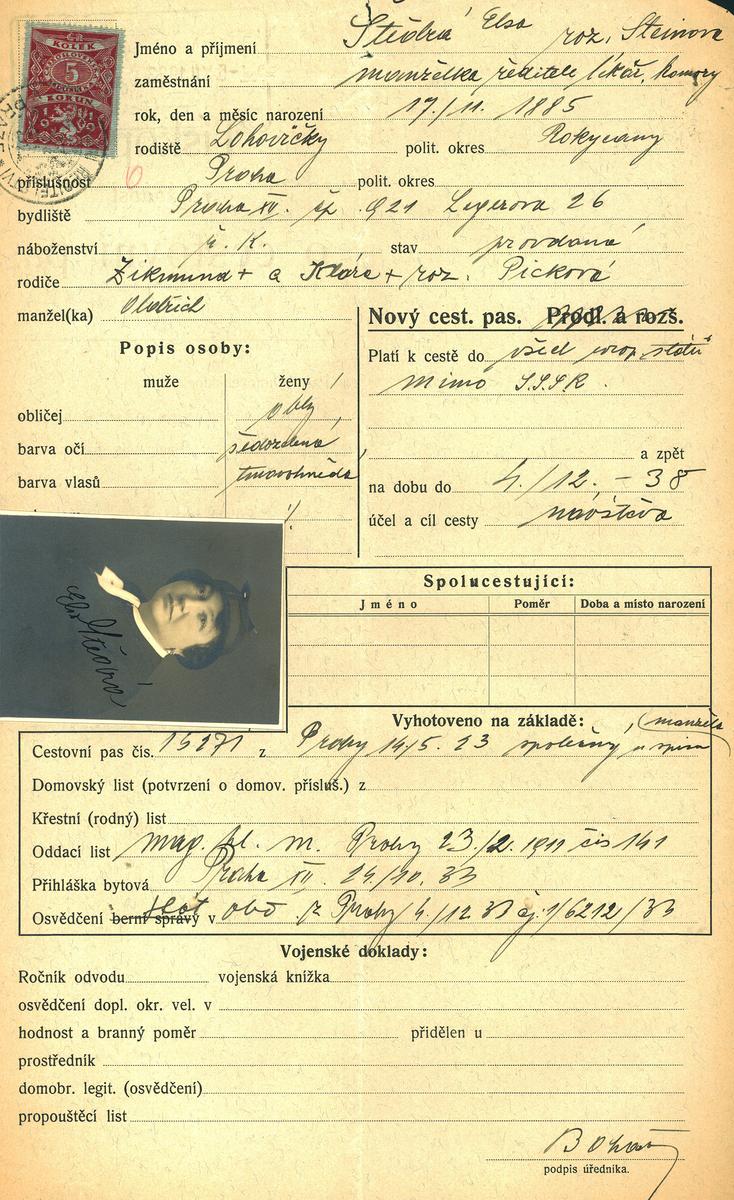 KOLEK
5
KORUN
1919
Jméno a příjmení Štědrá Elsa roz. Steinova
zaměstnání manželka ředitele lékař. komory
rok, den a měsíc narození 17./11. 1885
rodiště Lohovičky polit. okres Rokycany
příslušnost Praha polit. okres
bydliště Praha XII. čp. 921 Legerova 26
náboženství ř. K. stav provdaná
rodiče Zikmund + a Klára + roz. Picková
manžel(ka) Oldřich
Nový cest. pas. Prodl. a rozš.
Popis osoby:
Platí k cestě do všech evrop. států
mimo S.S.S.R.
muže ženy
obličej oblý
barva očí šedozelená
barva vlasů tmavohnědá
a zpět
na dobu do 4./12. - 38
účel a cíl cesty návštěva
Elsa Štědrá
Spolucestující:
Jméno Poměr Doba a místo narození
Vyhotoveno na základě:
Cestovní pas čís. 15271 z Prahy 14/5. 23 společný
Domovský list (potvrzení o domov. přísluš.) z
Křestní (rodný) list
Oddací list mag. hl. m. Prahy 23./2. 1911 čís 141
Přihláška bytová Praha XII. 24/10. 33
Osvědčení berní správy v obč. z Prahy 4./12 33 čj. 1/6212/33
Vojenské doklady:
Ročník odvodu vojenská knížka
osvědčení dopl. okr. vel. v
hodnost a branný poměr přidělen u
prostředník
domobr. legit. (osvědčení)
propouštěcí list
podpis úředníka.